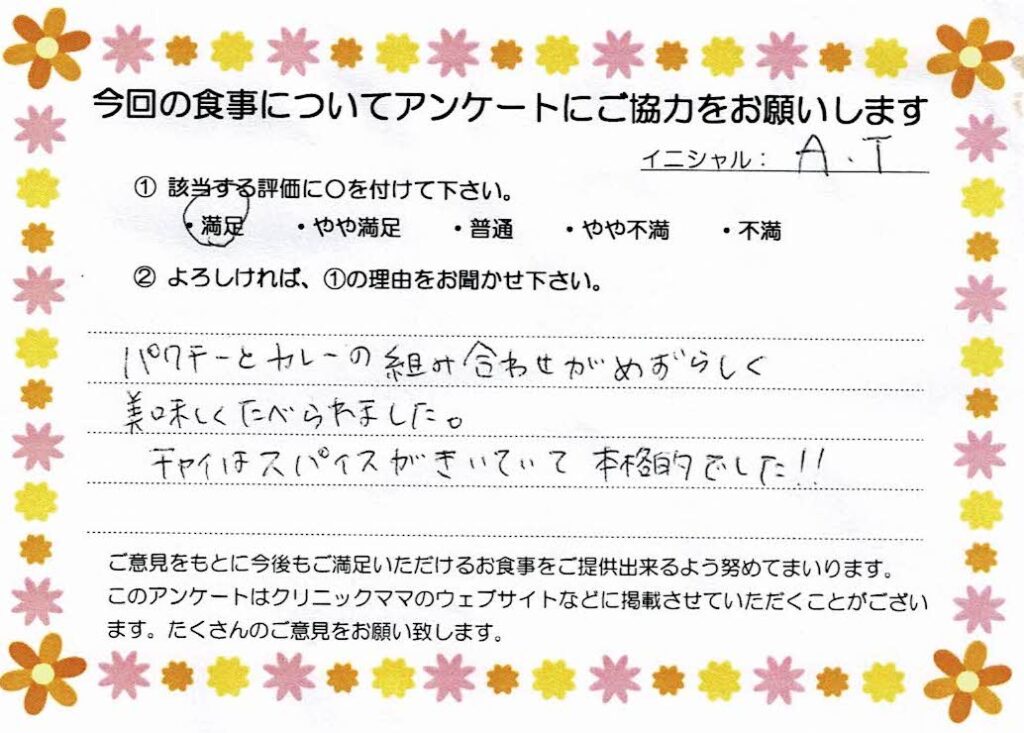 今回の食事についてアンケートにご協力をお願いします
イニシャル： A.T
① 該当する評価に〇を付けて下さい。
・満足 ・やや満足 ・普通 ・やや不満 ・不満
② よろしければ、①の理由をお聞かせ下さい。
パクチーとカレーの組み合わせがめずらしく
美味しくたべられました。
チャイはスパイスがきいていて本格的でした!!
ご意見をもとに今後もご満足いただけるお食事をご提供出来るよう努めてまいります。
このアンケートはクリニックママのウェブサイトなどに掲載させていただくことがござい
ます。たくさんのご意見をお願い致します。